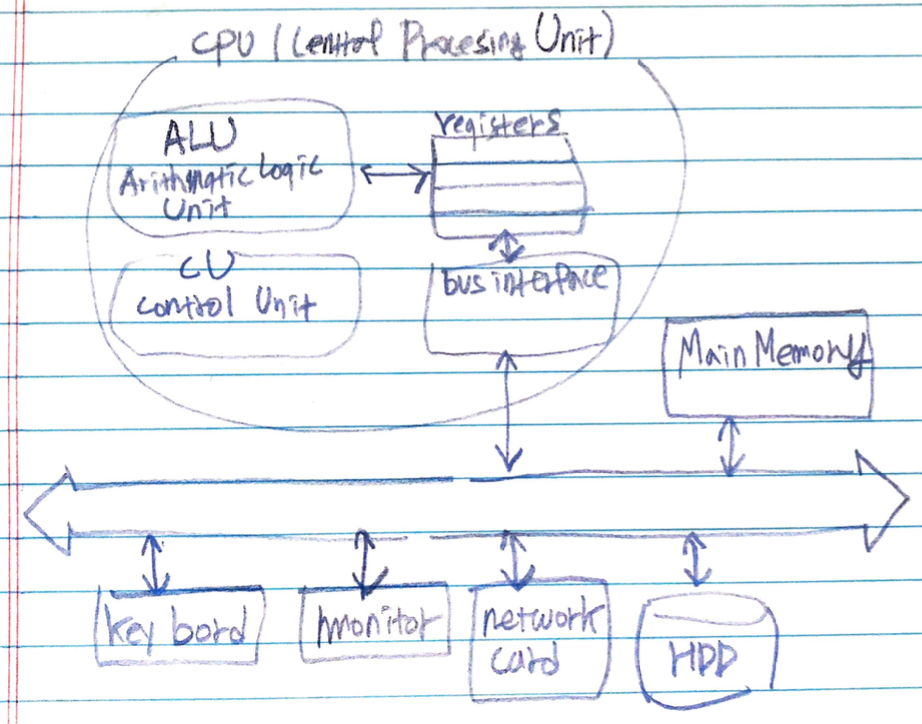 CPU (Central Procesing Unit)
ALU
Arithmatic Logic
Unit
registers
CU
Control Unit
bus interface
Main Memory
key bord
monitor
network
card
HDD